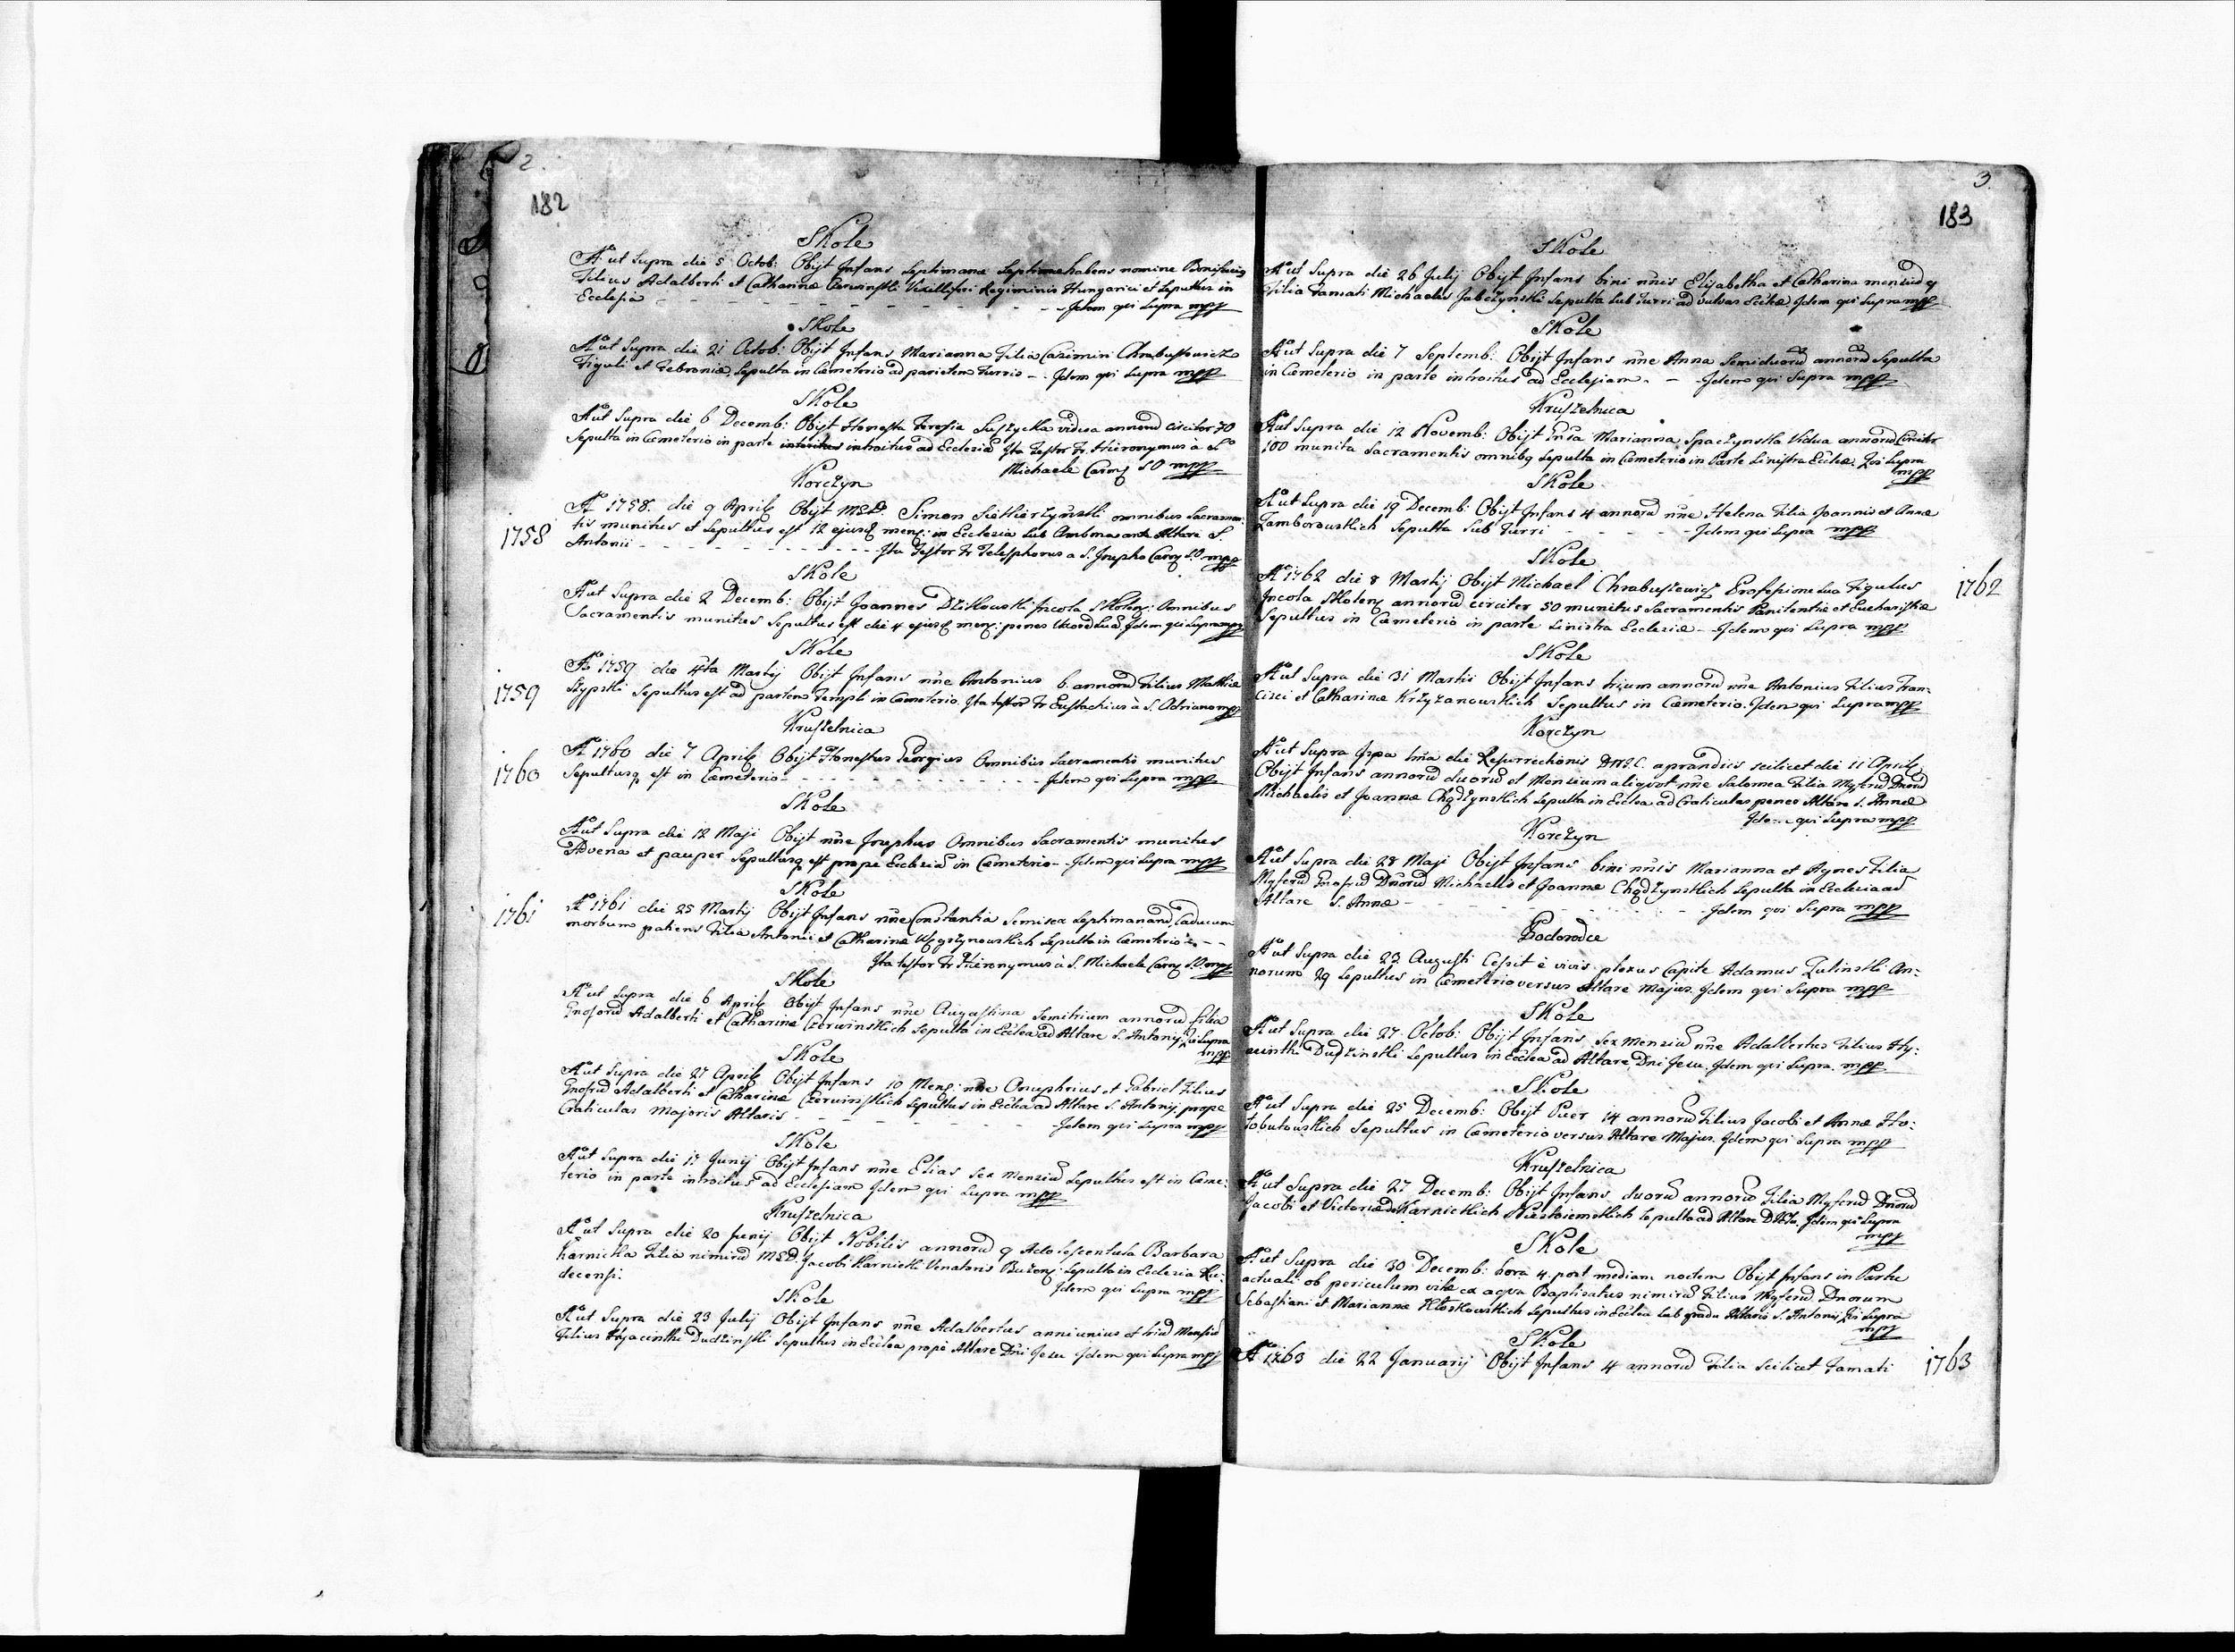 2.
182
Skole
Aõ ut Supra die 5 Octob: Obijt Infans Septimanæ Septimæ habens nomine Bonifacius
Filius Adalberti et Catharinæ Czerwinski Vexilliferi Regiminis Hungarici et Sepultus in
Ecclesia - - - Idem qui Supra mpp
Skole
Aõ ut Supra die 21 Octob: Obijt Infans Marianna Filia Casimiri Chrabustowicz
Figuli et Febroniæ Sepulta in Cæmeterio ad parietem Turris - Idem qui Supra mpp
Skole
Aõ ut Supra die 6 Decemb: Obijt Honesta Teresia vidua annorũ circiter 70
Sepulta in Cæmeterio in parte introitus ad Ecclesiã Ita Testor Fr. Hieronymus à Sº
Michaele Carmᵉ S.O mpp
Korczyn
1758
Aº 1758. die 9 Aprilᵉ Obijt M.G.D. Simon omnibus Sacramen:
tis munitus et Sepultus est 12 ejusdᵉ menᵉ: in Ecclesia Sub Ambona ante Altare S.
Antonii - - - Ita Testor Fr Telesphorus a S. Josepho Carmᵉ S.O mpp
Skole
Aõ ut Supra die 2 Decemb: Obijt Joannes Dzikowski Incola Skolenᵉ: Omnibus
Sacramentis munitus Sepultus est die 4 ejusdᵉ menᵉ: penes Uxorẽ Suã Idem qui Supra mpp
Skole
1759
Aº 1759 die 4ta Martij Obijt Infans nñe Antonius 6 annorũ Filius Matthiæ
Szypski Sepultus est ad partem Templi in Cæmeterio. Ita testor Fr Eustachius à S. Adriano mpp
Kruszelnica
1760
Aº 1760 die 7 Aprilᵉ Obijt Honestus Georgius Omnibus Sacramentis munitus
Sepultusq est in Cæmeterio - - - Idem qui Supra mpp
Skole
Aõ ut Supra die 12 Maji Obijt nñe Josephus Omnibus Sacramentis munitus
Advena et pauper Sepultusq est prope Ecclesiã in Cæmeterio - Idem qui Supra mpp
Skole
1761
Aº 1761 die 25 Martij Obijt Infans nñe Constantia Semisex Septimanarũ, Caducum
morbum patiens Filia Antonii et Catharinæ Węgrzynowskich Sepulta in Cæmeterio - -
Ita testor Fr Hieronymus à S. Michaele Carmᵉ S.O. mpp
Skole
Aõ ut Supra die 6 Aprilᵉ Obijt Infans nñe Augustina Semitrium annorũ filia
Gnosorũ Adalberti et Catharinæ Czerwinskich Sepulta in Ecclea ad Altare S. Antonij Qui Supra
mpp
Skole
Aõ ut Supra die 27 Aprilᵉ Obijt Infans 10 Menᵉ: nñe Onuphrius et Gabriel Filius
Gnosrũ Adalberti et Catharinæ Czerwinskich Sepultus in Ecclea ad Altare S. Antonij prope
Craticulas Majoris Altaris - - - Idem qui Supra mpp
Skole
Aõ ut Supra die 17 Junij Obijt Infans nñe Elias Sex Mensiũ Sepultus est in Cæme:
terio in parte introitus ad Ecclesiam Idem qui Supra mpp
Kruszelnica
Aõ ut Supra die 20 Junij Obijt Nobilis annorũ 9 Adolescentula Barbara
Karnicka Filia nimirũ M.G.D. Jacobi Karnicki Venatoris Buzenᵉ: Sepulta in Ecclesia Ru:
decensi. Idem qui Supra mpp
Skole
Aõ ut Supra die 23 Julij Obijt Infans nñe Adalbertus anni unius et triũ Mensiũ
Filius Hyacinthi Dudzinski Sepultus in Ecclea prope Altare Dñi Jesu Idem qui Supra mpp
3.
183
Skole
Aõ ut Supra die 26 Julij Obijt Infans bini nñis Elizabetha et Catharina mensiũ 9
Filia Famati Michaelis Jabczynski Sepulta Sub Turri ad valvas Ecclæ Idem qui Supra mpp
Skole
Aõ ut Supra die 7 Septemb: Obijt Infans nñe Anna Semiduorũ annorũ Sepulta
in Cæmeterio in parte introitus ad Ecclesiam. - - Idem qui Supra mpp
Kruszelnica
Aõ ut Supra die 12 Novemb: Obijt Gñsa Marianna Spaczynska Vidua annorũ Circiter
100 munita Sacramentis omnibq Sepulta in Cæmeterio in Parte Sinistra Ecclæ. Qui Supra
mpp
Skole
Aõ ut Supra die 19 Decemb: Obijt Infans 4 annorũ nñe Helena Filia Joannis et Annæ
Zamborowskich Sepulta Sub Turri - - - Idem qui Supra mpp
Skole
1762
Aº 1762 die 8 Martij Obijt Michael Chrabuszewicz Professione Sua Figulus
Incola Skolenᵉ annorũ circiter 50 munitus Sacramentis Pænitentiæ et Eucharistiæ
Sepultus in Cæmeterio in parte Sinistra Ecclesiæ - Idem qui Supra mpp
Skole
Aõ ut Supra die 31 Martii Obijt Infans trium annorũ nñe Antonius Filius Fran:
cisci et Catharinæ Krzyzanowskich Sepultus in Cæmeterio. Idem qui Supra mpp
Korczyn
Aõ ut Supra Ipsa die Resurrectionis D.N.J.C. a prandiis scilicet die 11 Aprilᵉ
Obijt Infans annorũ duorũ et Mensium aliqvot nñe Salomea Filia Mgferũ Dnorũ
Michaelis et Joannæ Chądzynskich Sepulta in Ecclea ad Craticulas penes Altare S. Annæ
Idem qui Supra mpp
Korczyn
Aõ ut Supra die 28 Maji Obijt Infans bini nñis Marianna et Agnes Filia
Mgferũ Gnosrũ Dñorũ Michaelis et Joannæ Chądzynskich Sepulta in Ecclesia ad
Altare S. Annæ - - - Idem qui Supra mpp
Podorodce
Aõ ut Supra die 23 Augusti Cessit è vivis plexus Capite Adamus Zulinski An:
norum 29 Sepultus in Cæmeterio versus Altare Majus. Idem qui Supra mpp
Skole
Aõ ut Supra die 27 Octob: Obijt Infans Sex Mensiũ nñe Adalbertus Filius Hy:
acinthi Dudzinski Sepultus in Ecclea ad Altare Dni Jesu. Idem qui Supra. mpp
Skole
Aõ ut Supra die 25 Decemb: Obijt Puer 14 annorũ Filius Jacobi et Annæ Ho:
tobutowskich Sepultus in Cæmeterio versus Altare Majus. Idem qui Supra mpp
Kruszelnica
Aõ ut Supra die 27 Decemb: Obijt Infans duorũ annorũ Filia Mgferũ Dñorũ
Jacobi et Victoriæ de Karnickich Sepulta ad Altare Idem qui Supra
mpp
Skole
Aõ ut Supra die 30 Decemb: hora 4. post mediam noctem Obijt Infans in Partu
actuali ob periculum vitæ ex aqva Baptisatus nimirũ Filius Mgferũ Dnorum
Sebastiani et Mariannæ Kłoskowskich Sepultus in Ecclea Sub gradu Altaris S. Antonij Qui Supra
mpp
Skole
1763
Aº 1763 die 22 Januarij Obijt Infans 4 annorũ Filia scilicet Famati